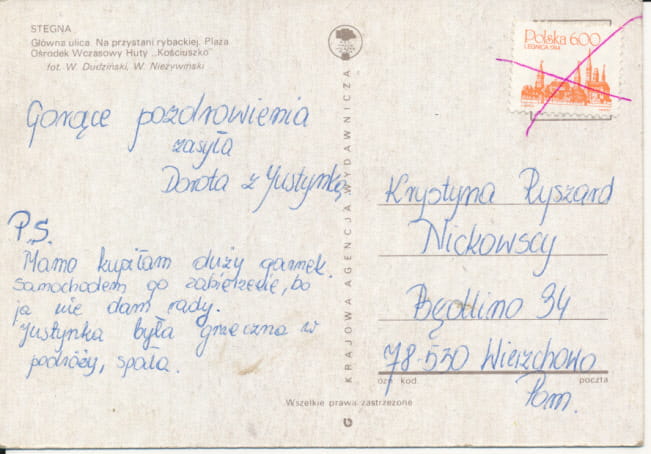 STEGNA
Główna ulica. Na przystani rybackiej. Plaża
Ośrodek Wczasowy Huty „Kościuszko"
fot. W. Dudziński, W. Nieżywiński
Gorące pozdrowienia
zasyła
Dorota z Justynką
P.S.
Mamo kupiłam duży garnek.
samochodem go zabierzecie, bo
ja nie dam rady.
Justynka była grzeczna w
podróży, spała.
KRAJOWA AGENCJA WYDAWNICZA
Polska 600
LEGNICA 1744
Krystyna Ryszard
Nickowscy
Będlino 34
78-530 Wierzchowo
ozn. kod. poczta
Pom.
Wszelkie prawa zastrzeżone